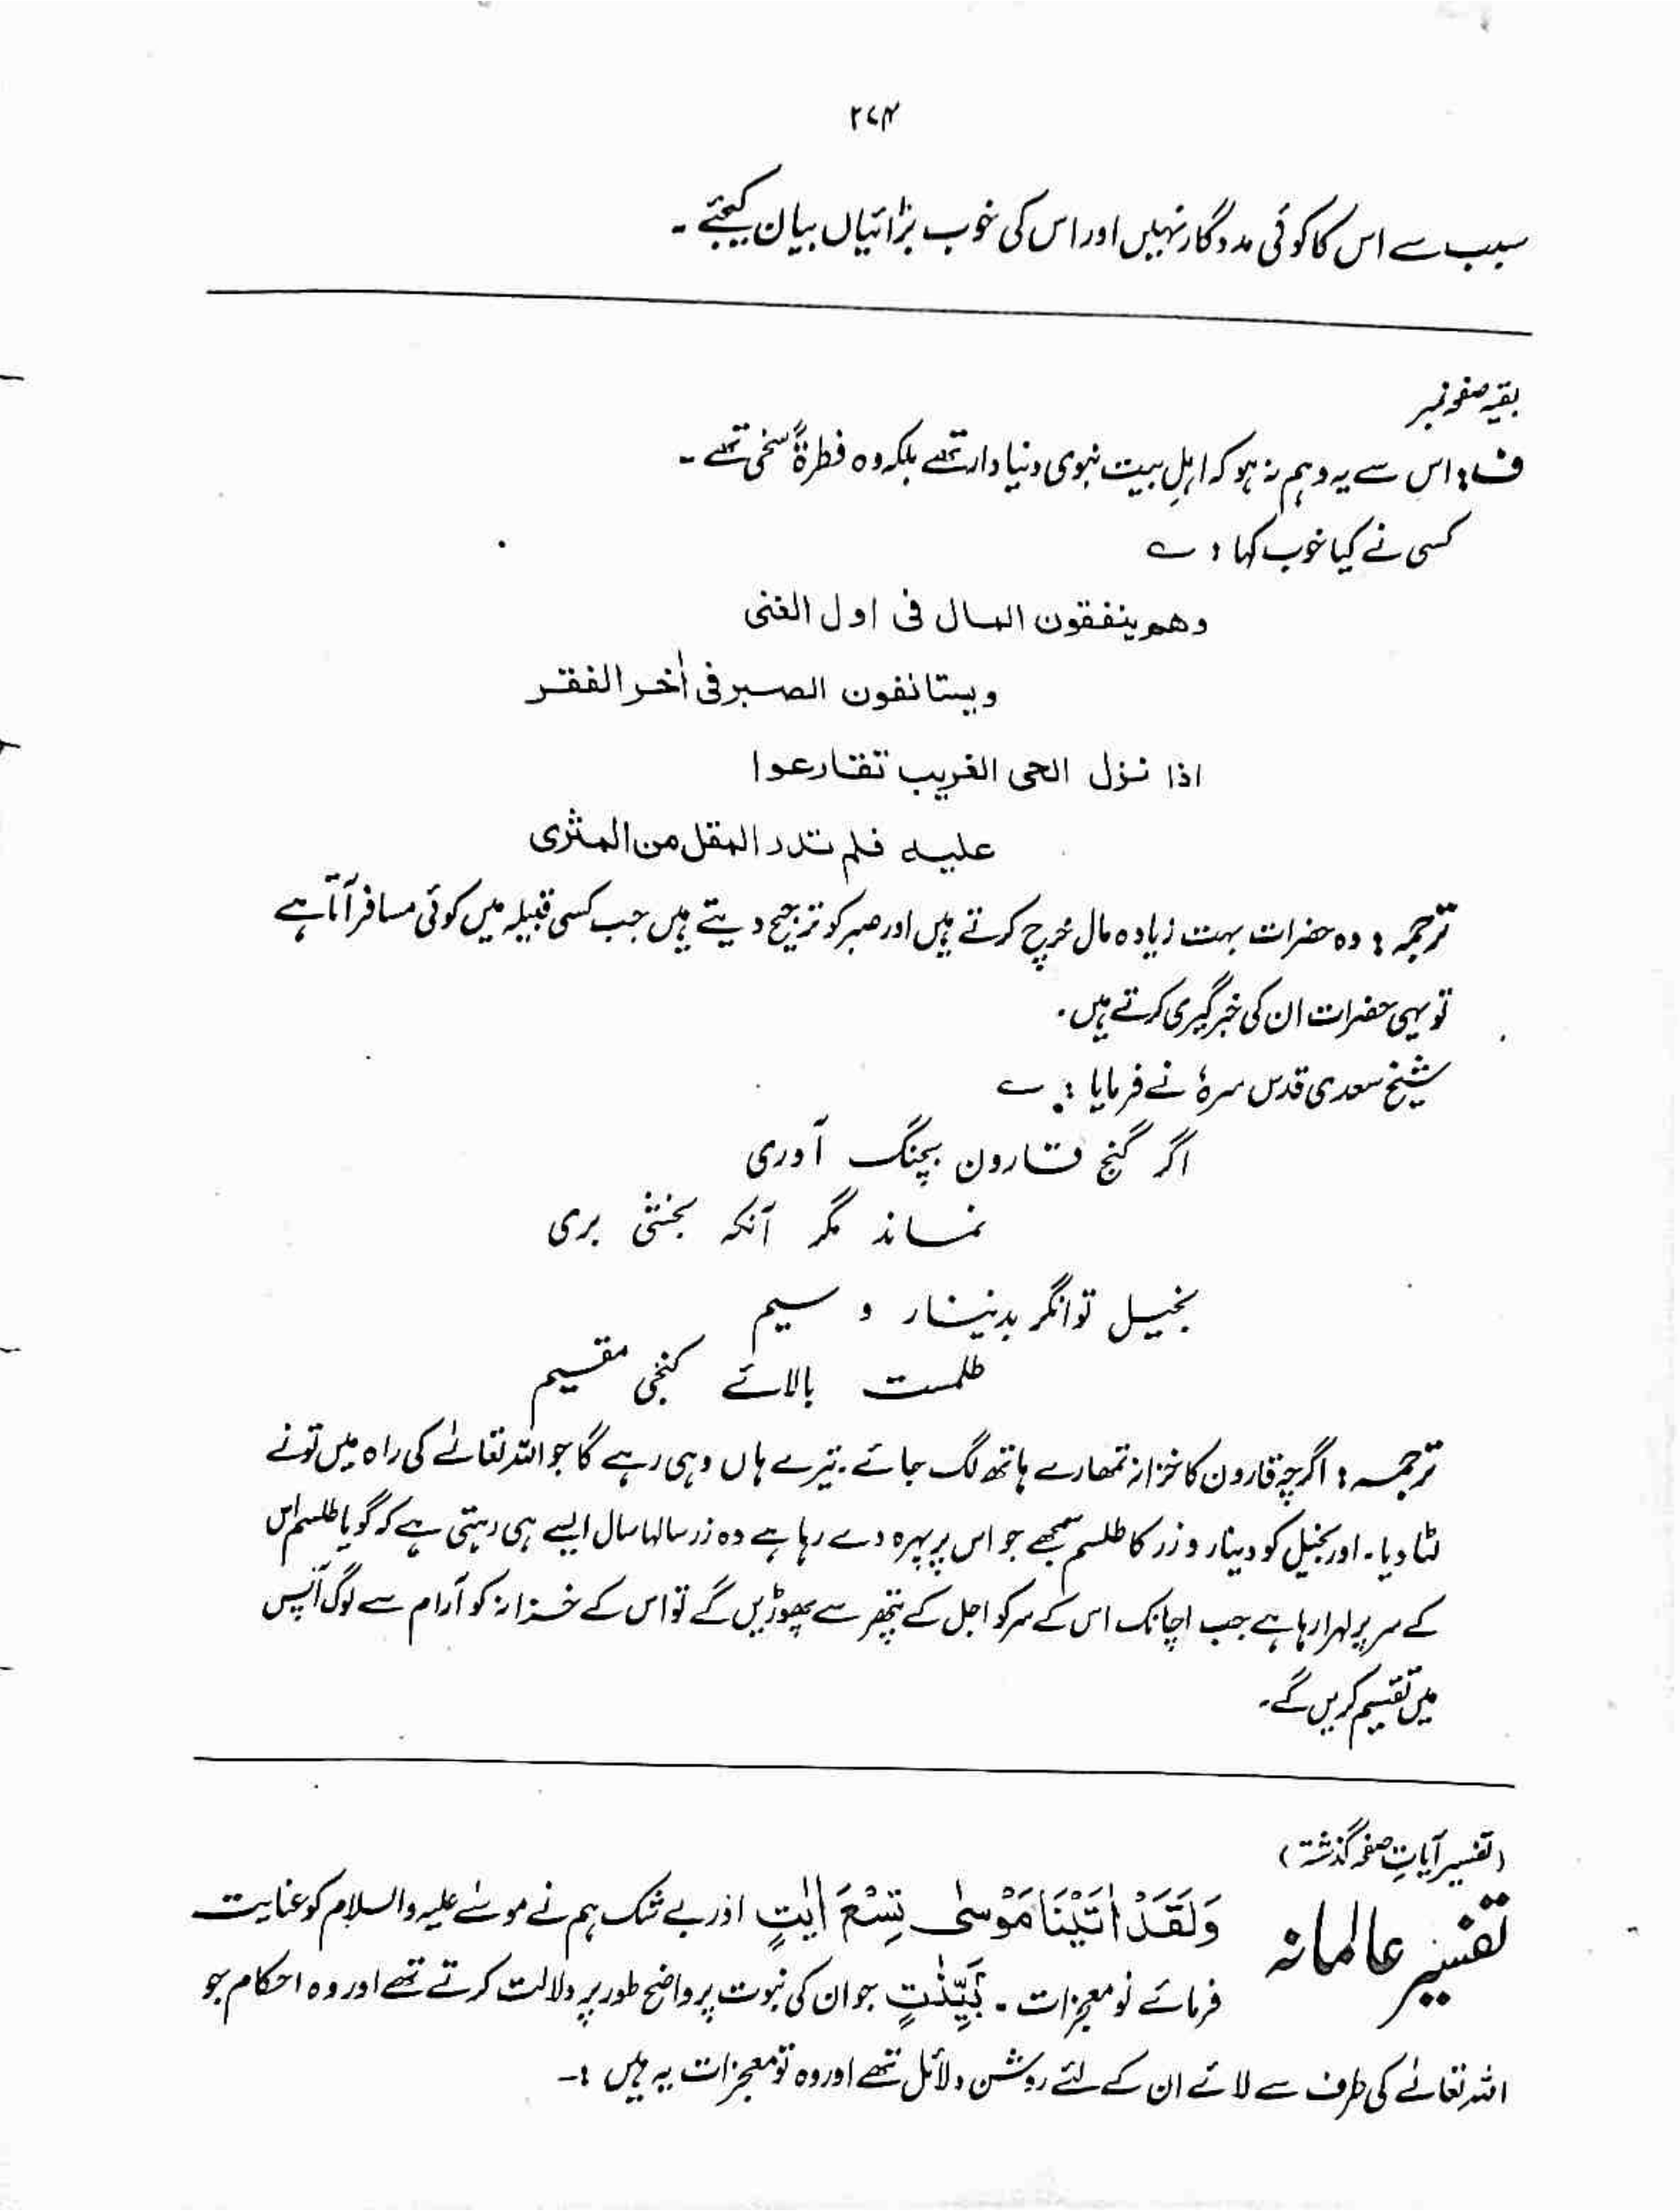 ۲۷۴
سبب سے اس کا کوئی مددگار نہیں اور اس کی خوب بڑائیاں بیان کیجئے ۔
بقیہ صفحہ نمبر
ف : اس سے یہ وہم نہ ہو کہ اہلِ بیت نبوی دنیا دار تھے بلکہ وہ فطرۃً سخی تھے ۔
کسی نے کیا خوب کہا : ے
وهم ينفقون المال فی اول الغنی
ويستانفون الصبر فی اٰخر الفقر
اذا نزل الحی الغريب تقارعوا
عليه فلم تدر المقل من المثری
ترجمہ : وہ حضرات بہت زیادہ مال خرچ کرتے ہیں اور صبر کو ترجیح دیتے ہیں جب کسی قبیلہ میں کوئی مسافر آتا ہے
تو یہی حضرات ان کی خبرگیری کرتے ہیں ۔
شیخ سعدی قدس سرہٗ نے فرمایا : ے
اگر گنج قارون بچنگ آوری
نماند مگر آنکہ بخشی بری
بخیل توانگر بدینار و سیم
طلمست بالائے گنجی مقیم
ترجمہ : اگرچہ قارون کا خزانہ تمھارے ہاتھ لگ جائے ۔ تیرے ہاں وہی رہے گا جو اللہ تعالےٰ کی راہ میں تونے
لٹا دیا ۔ اور بخیل کو دینار و زر کا طلسم سمجھے جو اس پر پہرہ دے رہا ہے وہ زر سالہا سال ایسے ہی رہتی ہے کہ گویا طلسم اس
کے سر پر لہرا رہا ہے جب اچانک اس کے سر کو اجل کے پتھر سے پھوڑیں گے تو اس کے خزانہ کو آرام سے لوگ آپس
میں تقسیم کریں گے ۔
( تفسیر آیات صفحہ گذشتہ )
تفسیر عالمانہ وَلَقَدْ اٰتَيْنَا مُوْسٰى تِسْعَ اٰيٰتٍ اور بے شک ہم نے موسیٰ علیہ والسلام کو عنایت
فرمائے نو معجزات ۔ بَيِّنٰتٍ جو ان کی نبوت پر واضح طور پر دلالت کرتے تھے اور وہ احکام جو
اللہ تعالےٰ کی طرف سے لائے ان کے لئے روشن دلائل تھے اور وہ نو معجزات یہ ہیں :۔